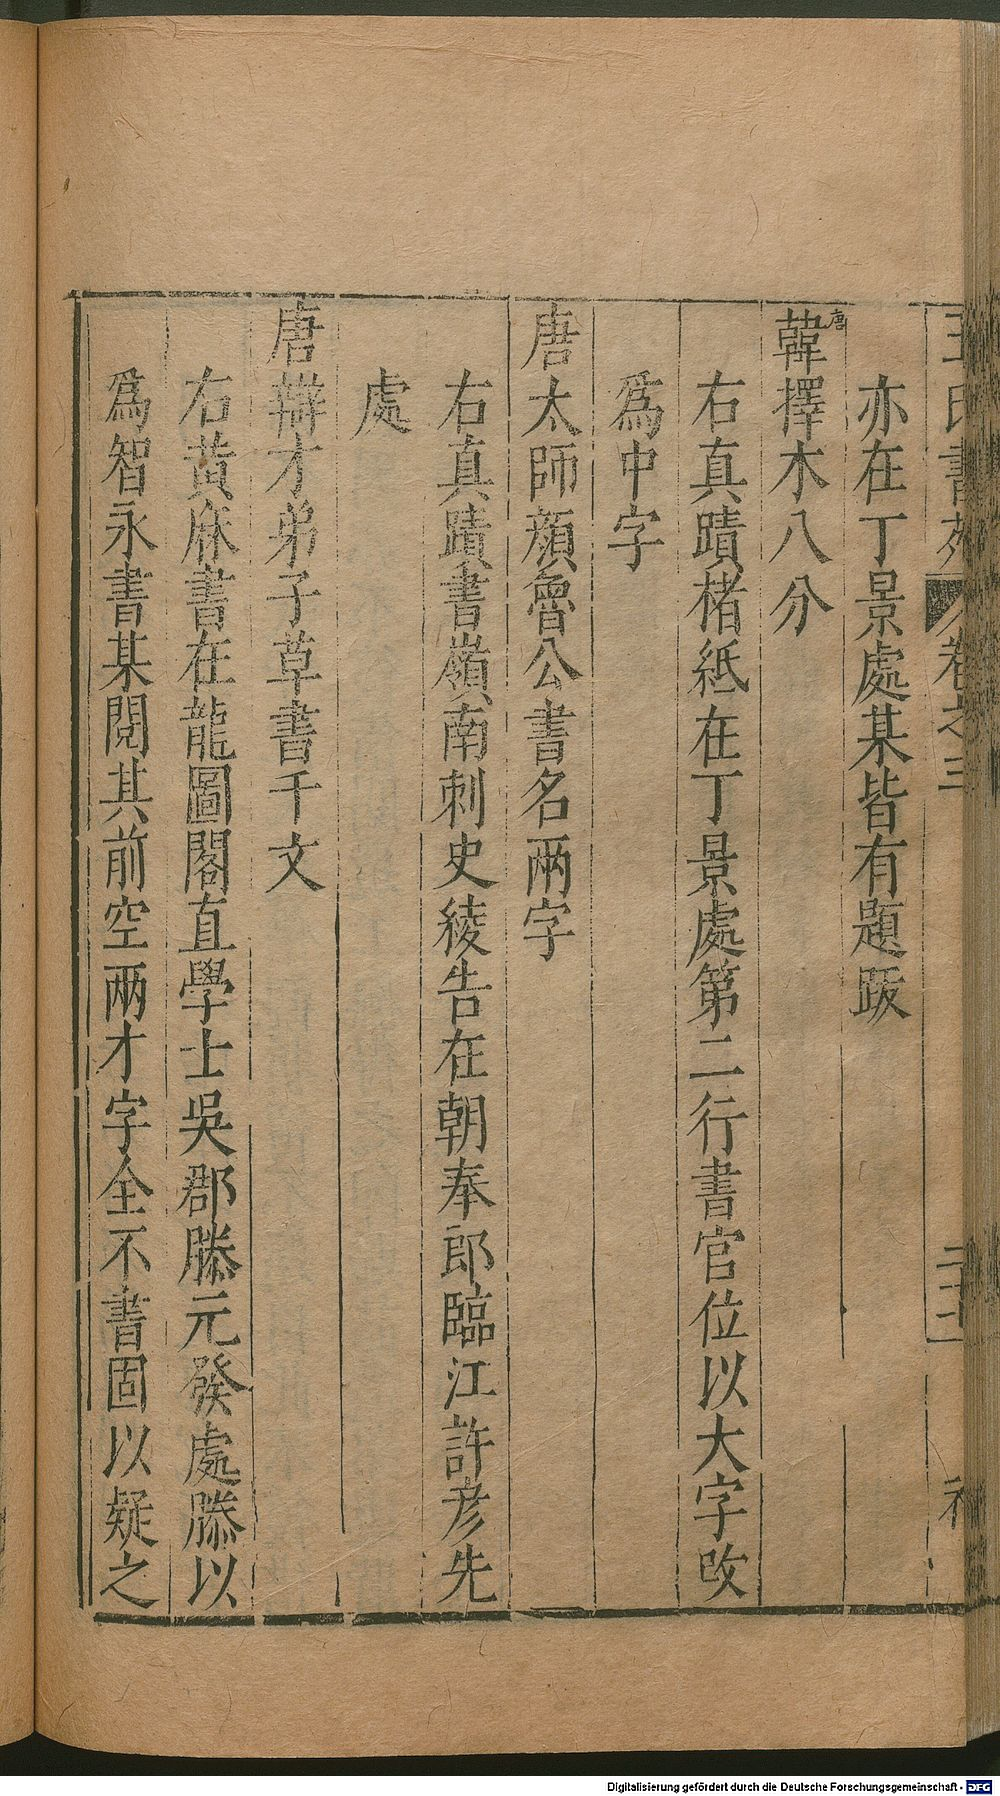 王氏書苑 卷之三 二十七
亦在丁景處某皆有題跋
唐韓擇木八分
右真蹟楮紙在丁景處第二行書官位以大字改
爲中字
唐太師顏魯公書名兩字
右真蹟書嶺南刺史綾告在朝奉郎臨江許彥先
處
唐辯才弟子草書千文
右黃麻書在龍圖閣直學士吳郡滕元發處滕以
爲智永書某閱其前空兩才字全不書固以疑之
Digitalisierung gefördert durch die Deutsche Forschungsgemeinschaft - DFG